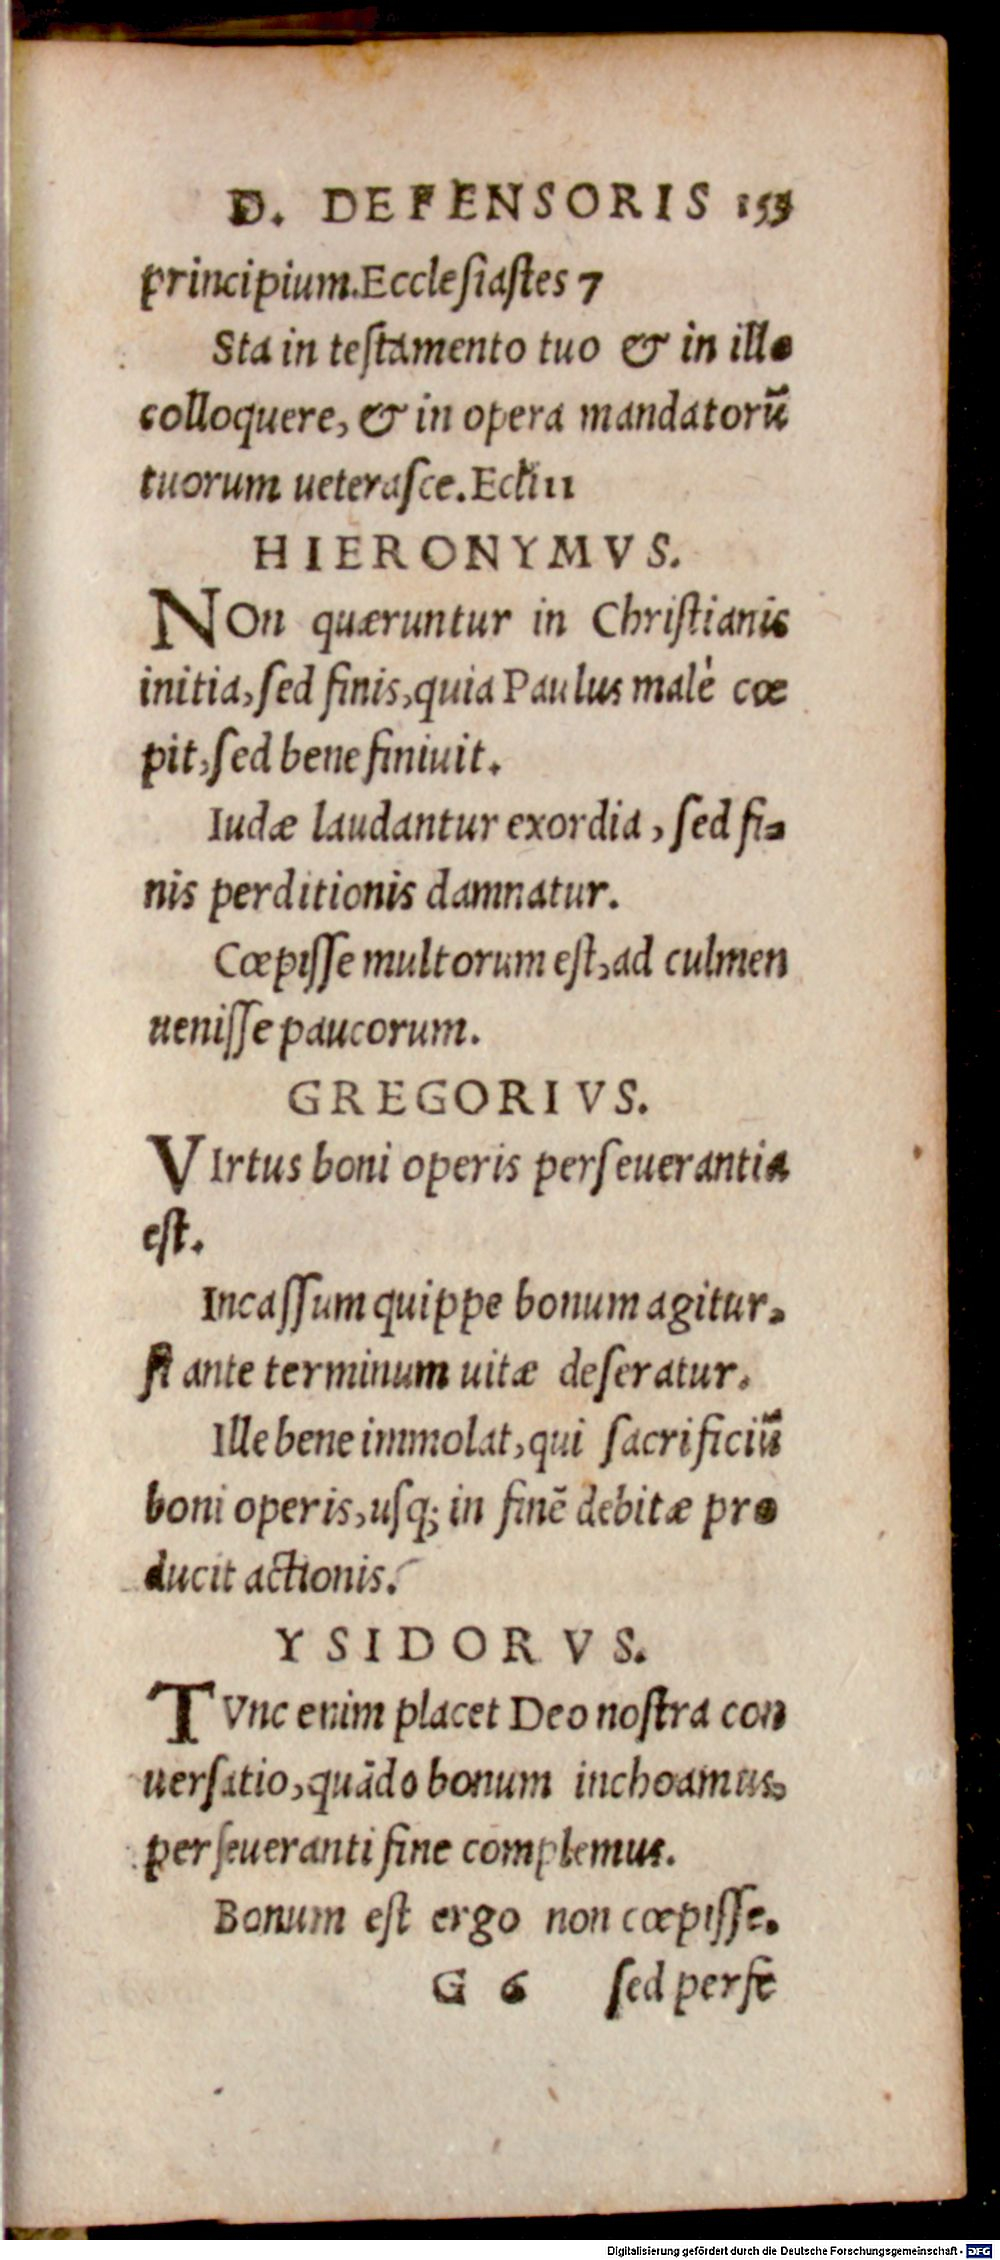 D. DEFENSORIS 153
principium. Eccleſiaſtes 7
Sta in teſtamento tuo & in illo
colloquere, & in opera mandatorũ
tuorum ueteraſce. Ecłi 11
HIERONYMVS.
NOn quæruntur in Chriſtianis
initia, ſed finis, quia Paulus malè cœ
pit, ſed bene finiuit.
Iudæ laudantur exordia, ſed fi=
nis perditionis damnatur.
Cœpiſſe multorum eſt, ad culmen
ueniſſe paucorum.
GREGORIVS.
VIrtus boni operis perſeuerantia
eſt.
Incaſſum quippe bonum agitur,
ſi ante terminum uitæ deſeratur.
Ille bene immolat, qui ſacrificiũ
boni operis, uſq; in finẽ debitæ pro
ducit actionis.
YSIDORVS.
TVnc enim placet Deo noſtra con
uerſatio, quãdo bonum inchoamus,
perſeueranti fine complemus.
Bonum eſt ergo non cœpiſſe,
G 6 ſed perſe
Digitalisierung gefördert durch die Deutsche Forschungsgemeinschaft - DFG